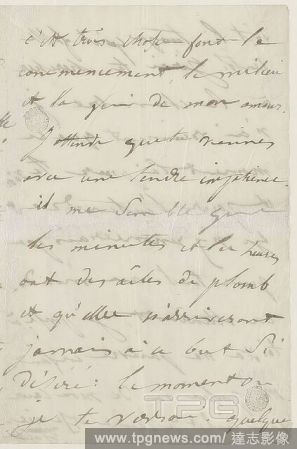 c'est trois chose font le
commencement le milieu
et la fin de mon amour.
J'attends que tu viennes
avec une tendre impatience.
il me semble que
les minutes et les heures
ont des ailes de plomb
et qu'elles n'arriveront
jamais à ce but si
désiré: le moment où
je te verrai. quelque
TPG
www.tpgnews.com/達志影像